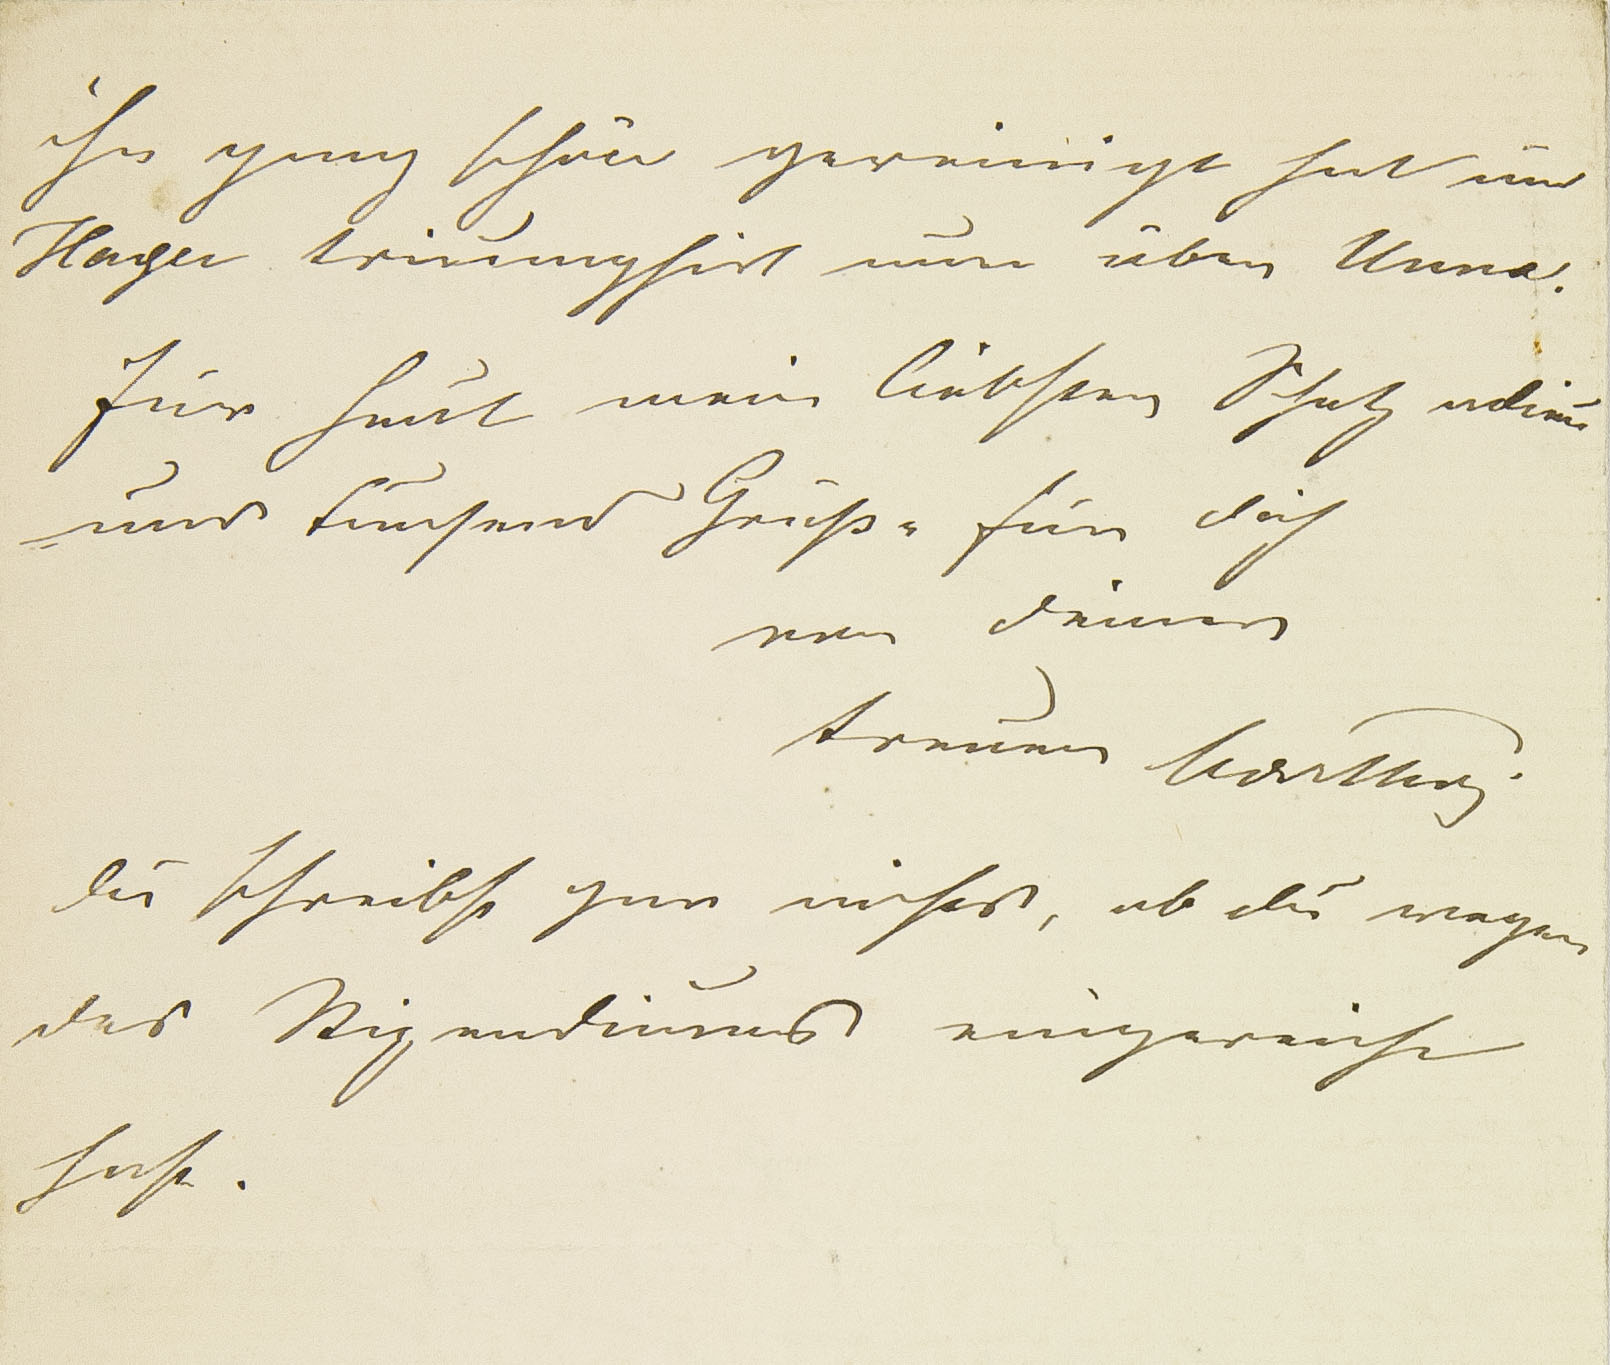 ihn ganz schön gereinigt hat und
Hagen triumphirt nun über Unna.
Für heut mein liebster Schatz adieu
und tausend Grüße für dich
von deinem
treuen
du schreibst gar nichts, ob du wegen
des Stipendiums eingereicht
hast.